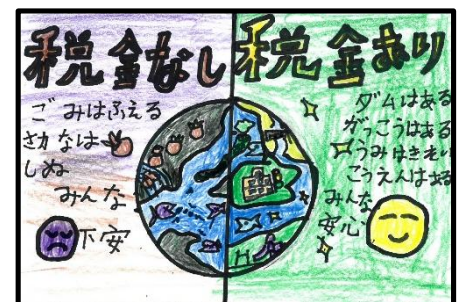 税金なし
ごみはふえる
さかなは
しぬ
みんな
不安
税金あり
ダムはある
がっこうはある
うみはきれい
こうえんはある
みんな
安心